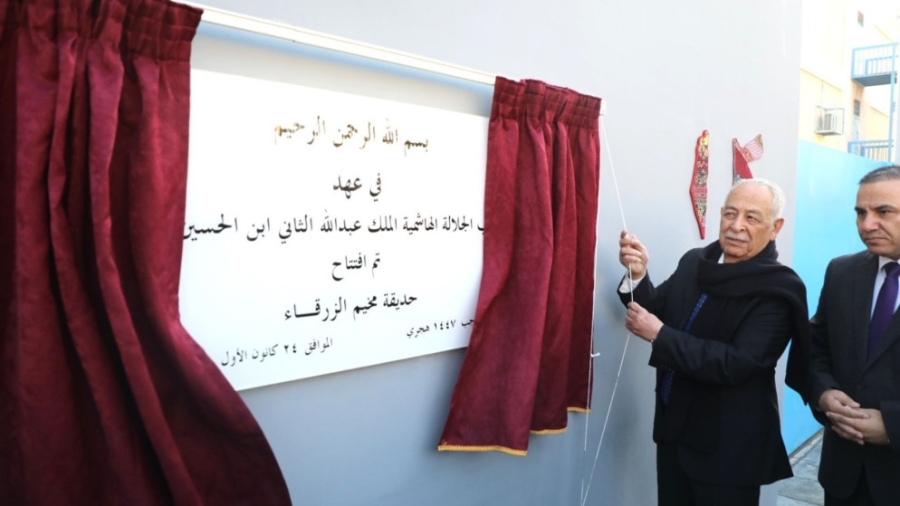 بسم الله الرحمن الرحيم
في عهد
الجلالة الهاشمية الملك عبدالله الثاني ابن الحسين
تم افتتاح
حديقة مخيم الزرقـــاء
١٤٤٧ هجري الموافق ٢٤ كانون الأول